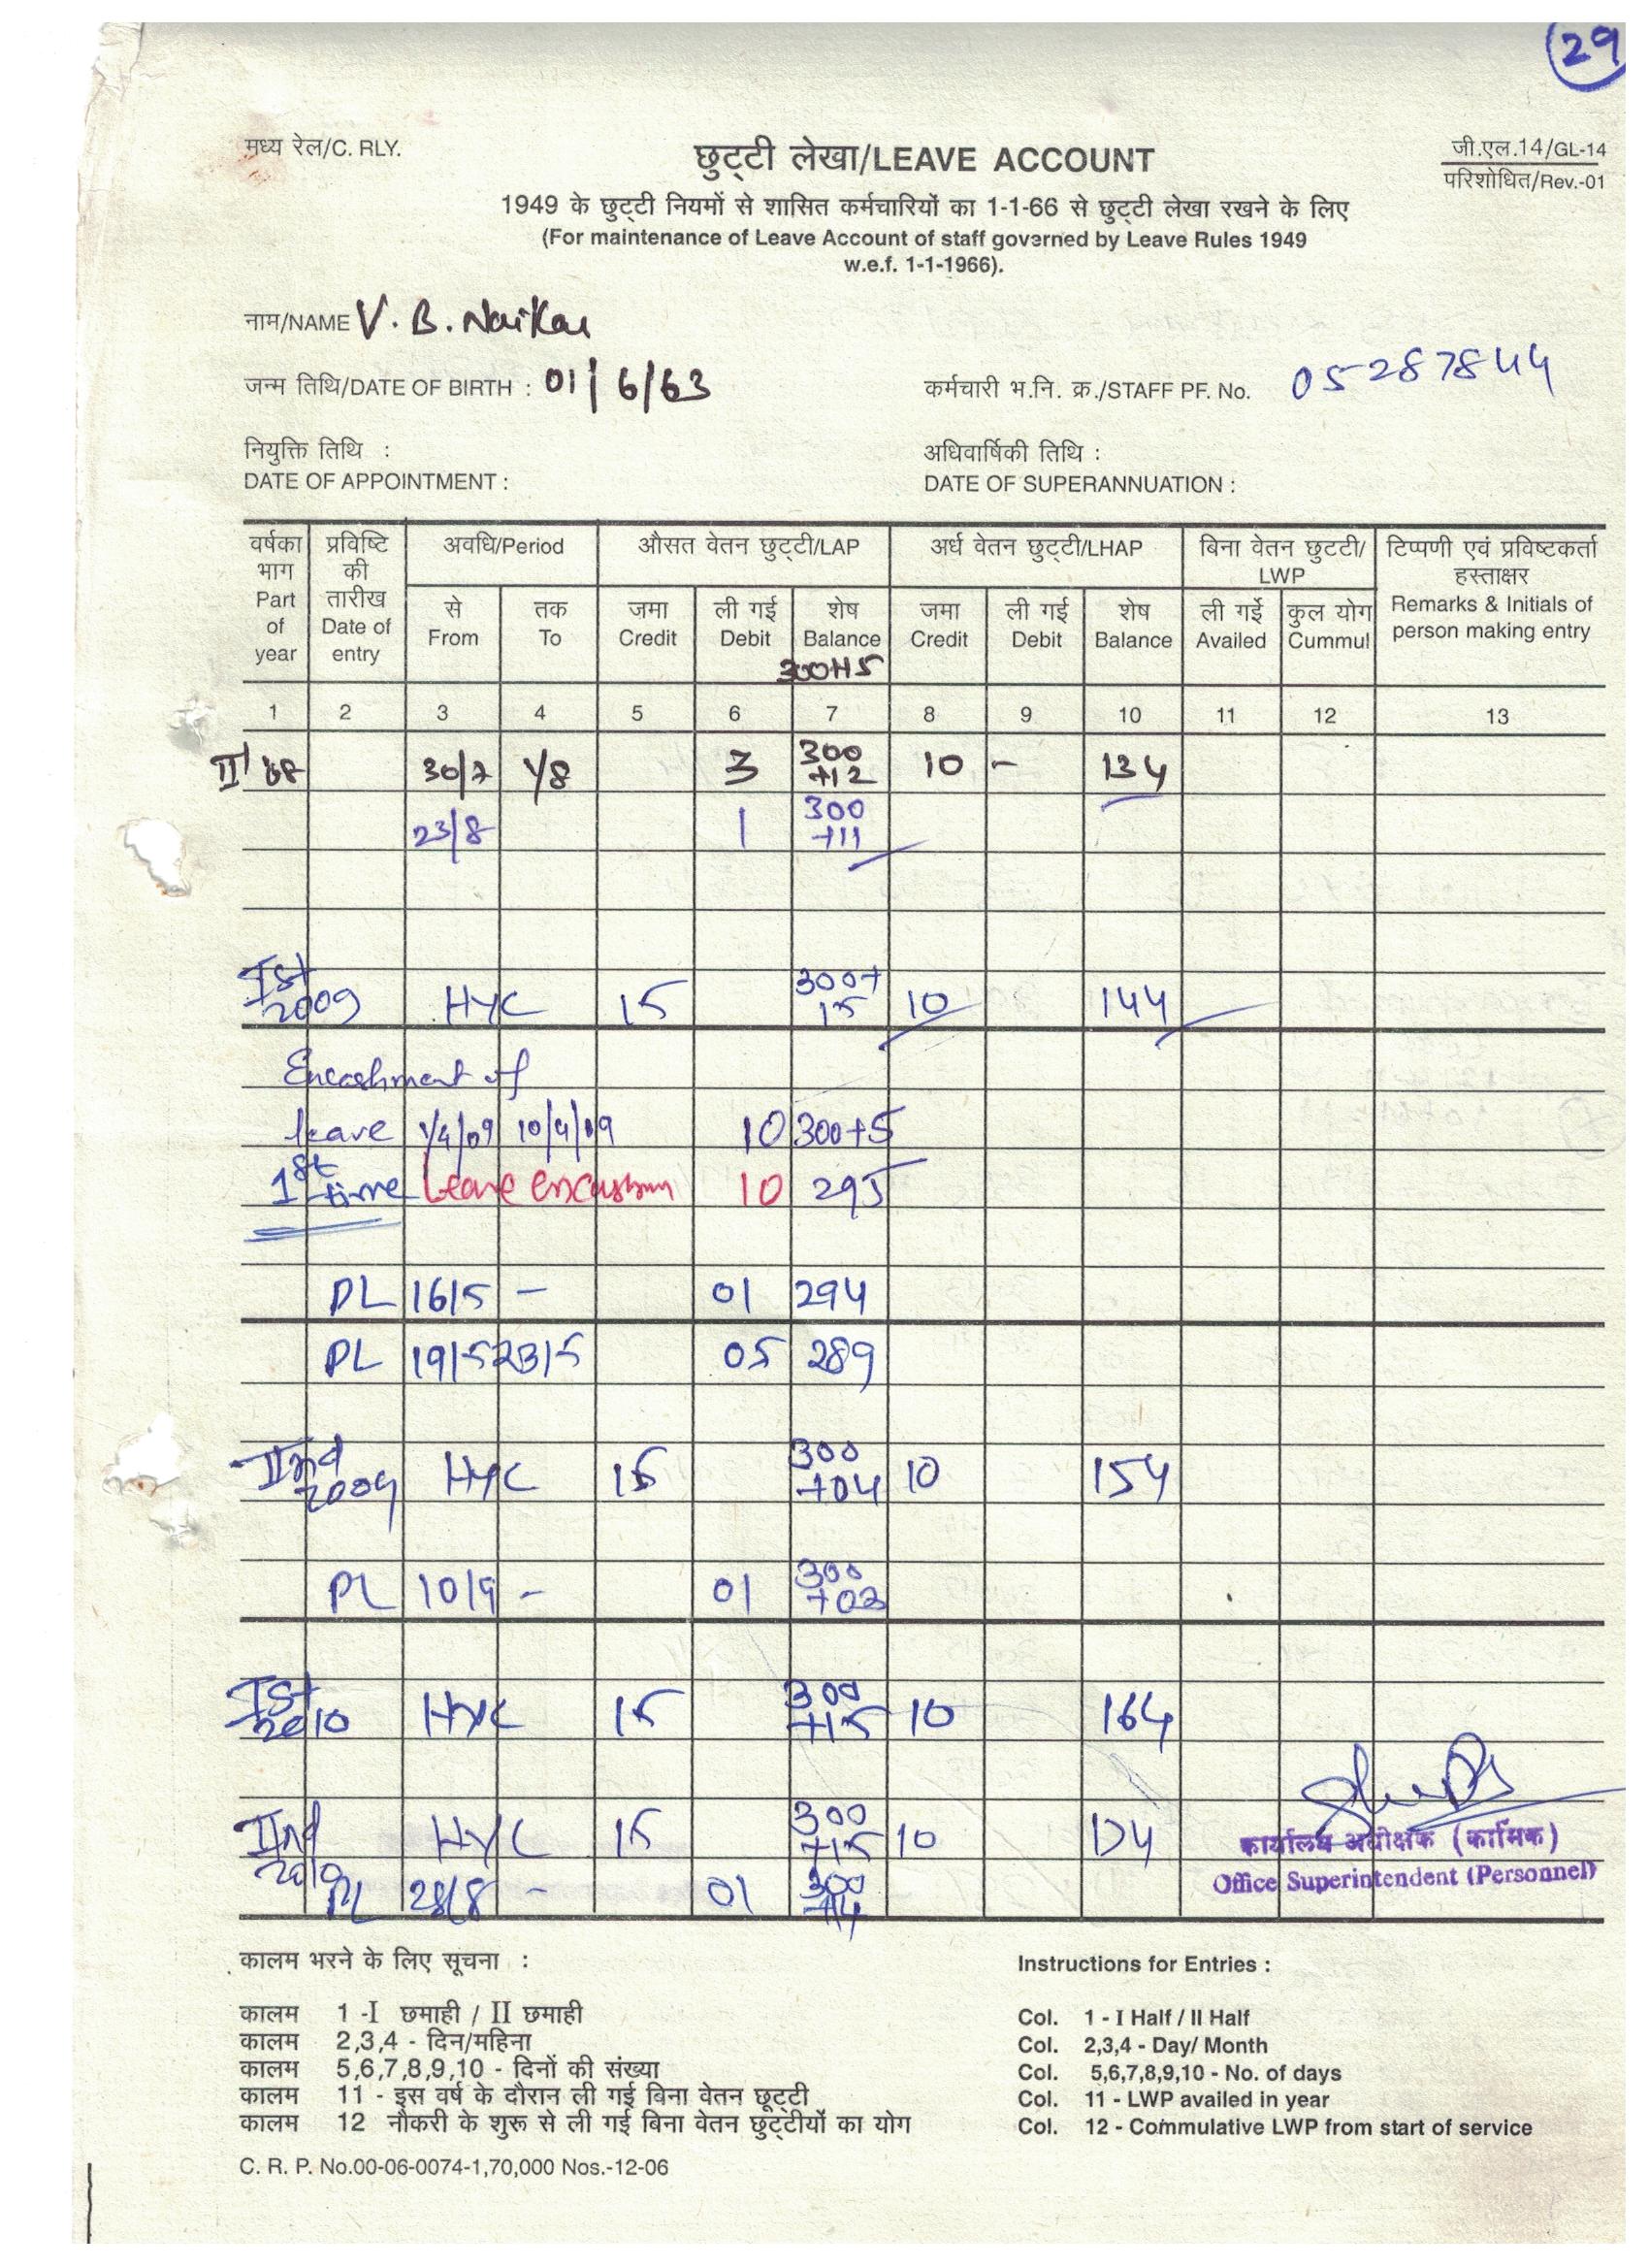 29
मध्य रेल/C. RLY.
छुट्टी लेखा/LEAVE ACCOUNT
जी.एल.14/GL-14
परिशोधित/Rev.-01
1949 के छुट्टी नियमों से शासित कर्मचारियों का 1-1-66 से छुट्टी लेखा रखने के लिए
(For maintenance of Leave Account of staff governed by Leave Rules 1949
w.e.f. 1-1-1966).
नाम/NAME V. B. Naikar
जन्म तिथि/DATE OF BIRTH : 01/6/63
कर्मचारी भ.नि. क्र./STAFF PF. No. 05287844
नियुक्ति तिथि :
DATE OF APPOINTMENT :
अधिवार्षिकी तिथि :
DATE OF SUPERANNUATION :
वर्षका भाग Part of year
प्रविष्टि की तारीख Date of entry
अवधि/Period
औसत वेतन छुट्टी/LAP
अर्ध वेतन छुट्टी/LHAP
बिना वेतन छुटटी/ LWP
टिप्पणी एवं प्रविष्टकर्ता हस्ताक्षर Remarks & Initials of person making entry
से From
तक To
जमा Credit
ली गई Debit
शेष Balance
जमा Credit
ली गई Debit
शेष Balance
ली गईे Availed
कुल योग Cummul
300+15
1 2 3 4 5 6 7 8 9 10 11 12 13
II 30/7 1/8 3 300 +12 10 - 134
23/8 1 300 +11
Ist 2009 HYC 15 300+ 15 10 144
Encashment of
leave 1/4/09 10/4/09 10 300+5
1st time Leave encashm 10 295
PL 16/5 - 01 294
PL 19/5 23/5 05 289
IInd 2009 HYC 15 300 +04 10 154
PL 10/9 - 01 300 +03
Ist 2010 HYC 15 300 +15 10 164
IInd 2010 HYC 15 300 +15 10 174
PL 28/8 - 01 300 +14
कार्यालय अधीक्षक (कार्मिक)
Office Superintendent (Personnel)
कालम भरने के लिए सूचना :
कालम 1 -I छमाही / II छमाही
कालम 2,3,4 - दिन/महिना
कालम 5,6,7,8,9,10 - दिनों की संख्या
कालम 11 - इस वर्ष के दौरान ली गई बिना वेतन छूट्टी
कालम 12 नौकरी के शुरू से ली गई बिना वेतन छुट्टीयों का योग
Instructions for Entries :
Col. 1 - I Half / II Half
Col. 2,3,4 - Day/ Month
Col. 5,6,7,8,9,10 - No. of days
Col. 11 - LWP availed in year
Col. 12 - Commulative LWP from start of service
C. R. P. No.00-06-0074-1,70,000 Nos.-12-06